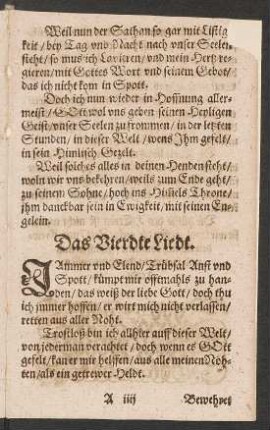 Weil nun der Sathan so gar mit Listig
keit / bey Tag vnd Nacht nach vnser Seelen
steht / so mus ich Lavieren / vnd mein Hertz re-
gieren / mit Gottes Wort vnd seinem Gebot /
das ich nicht kom in Spott.
Doch ich nun wieder in Hoffnung aller-
meist / GOtt wol vns geben seinen Heyligen
Geist / vnser Seelen zu frommen / in der letzten
Stunden / in dieser Welt / wens Ihm gefelt /
in sein Himlisch Gezelt.
Weil solches alles in deinen Henden steht /
woln wir vns bekehren / weils zum Ende geht /
zu seinem Sohne / hoch ins Himels Throne /
ihm danckbar sein in Ewigkeit / mit seinen En-
gelein.
Das Vierdte Liedt.
JAmmer vnd Elend / Trübsal Anst vnd
Spott / kümpt mir offtmahls zu han-
den / das weiß der liebe Gott / doch thu
ich jmmer hoffen / er wirt mich nicht verlassen /
retten aus aller Noht.
Trostloß bin ich allhier auff dieser Welt /
von jederman verachtet / doch wenn es GOtt
gefelt / kan er mir helffen / aus alle meinen Nöh-
ten / als ein getrewer Heldt.
A iiij Bewehret